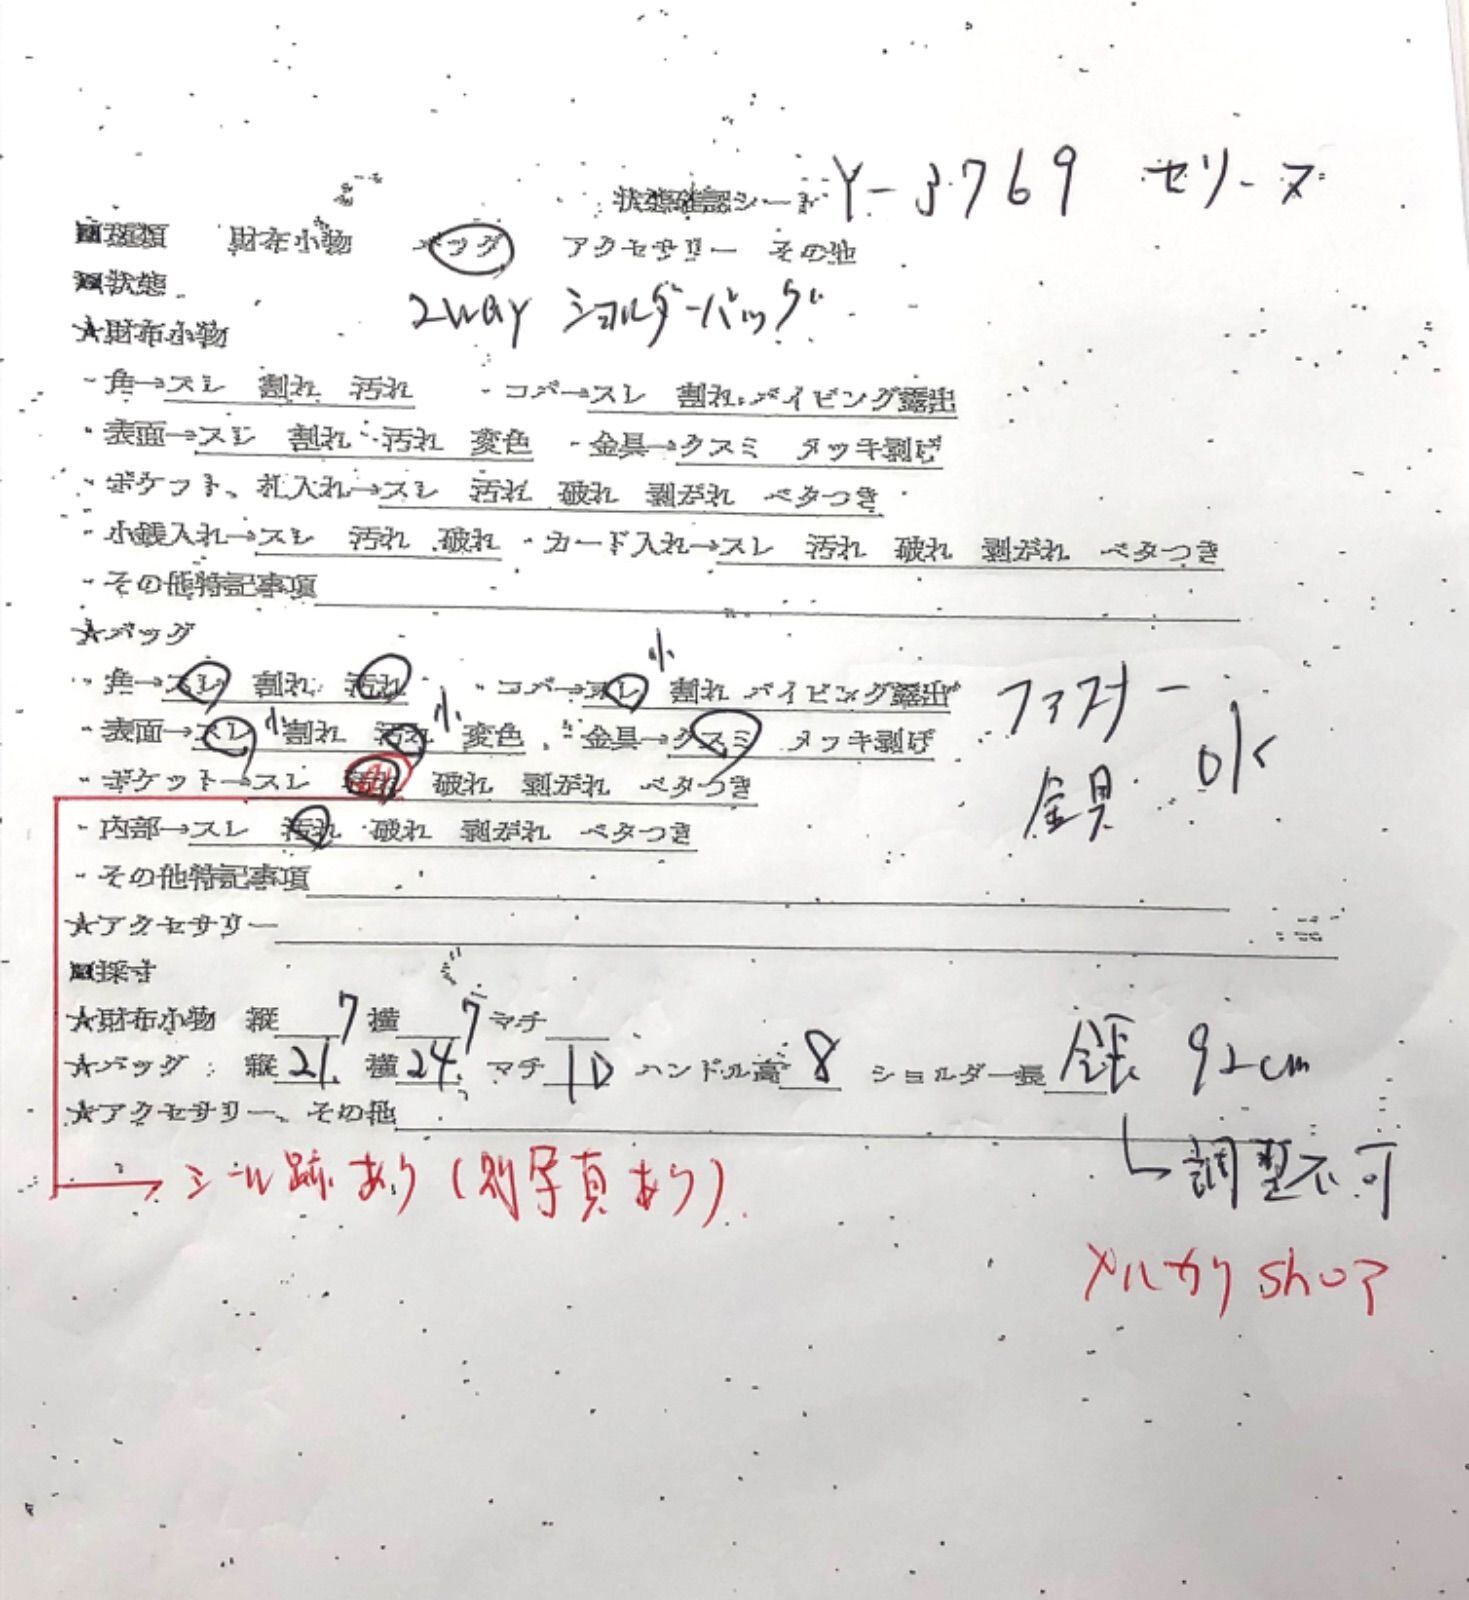 状態確認シート Y-3769 セリーヌ
■種類 財布小物 バッグ アクセサリー その他
■状態 2WAY ショルダーバッグ
★財布小物
・角→スレ 割れ 汚れ ・コバ→スレ 割れ パイピング露出
・表面→スレ 割れ 汚れ 変色 ・金具→クスミ メッキ剥げ
・ポケット、札入れ→スレ 汚れ 破れ 剥がれ ベタつき
・小銭入れ→スレ 汚れ 破れ ・カード入れ→スレ 汚れ 破れ 剥がれ ベタつき
・その他特記事項
★バッグ
・角→スレ 割れ 汚れ ・コバ→スレ 小 割れ パイピング露出 ファスナー
・表面→スレ 小 割れ 汚れ 小 変色 ・金具→クスミ メッキ剥げ OK
・ポケット→スレ 汚れ 破れ 剥がれ ベタつき 金具
・内部→スレ 汚れ 破れ 剥がれ ベタつき
・その他特記事項
★アクセサリー
■採寸
★財布小物 縦 7 横 7 マチ
★バッグ : 縦 21. 横 24. マチ 10 ハンドル高 8 ショルダー長 全長 92cm
★アクセサリー、その他
↳調整不可
→シール跡あり(別写真あり)
メルカリshop